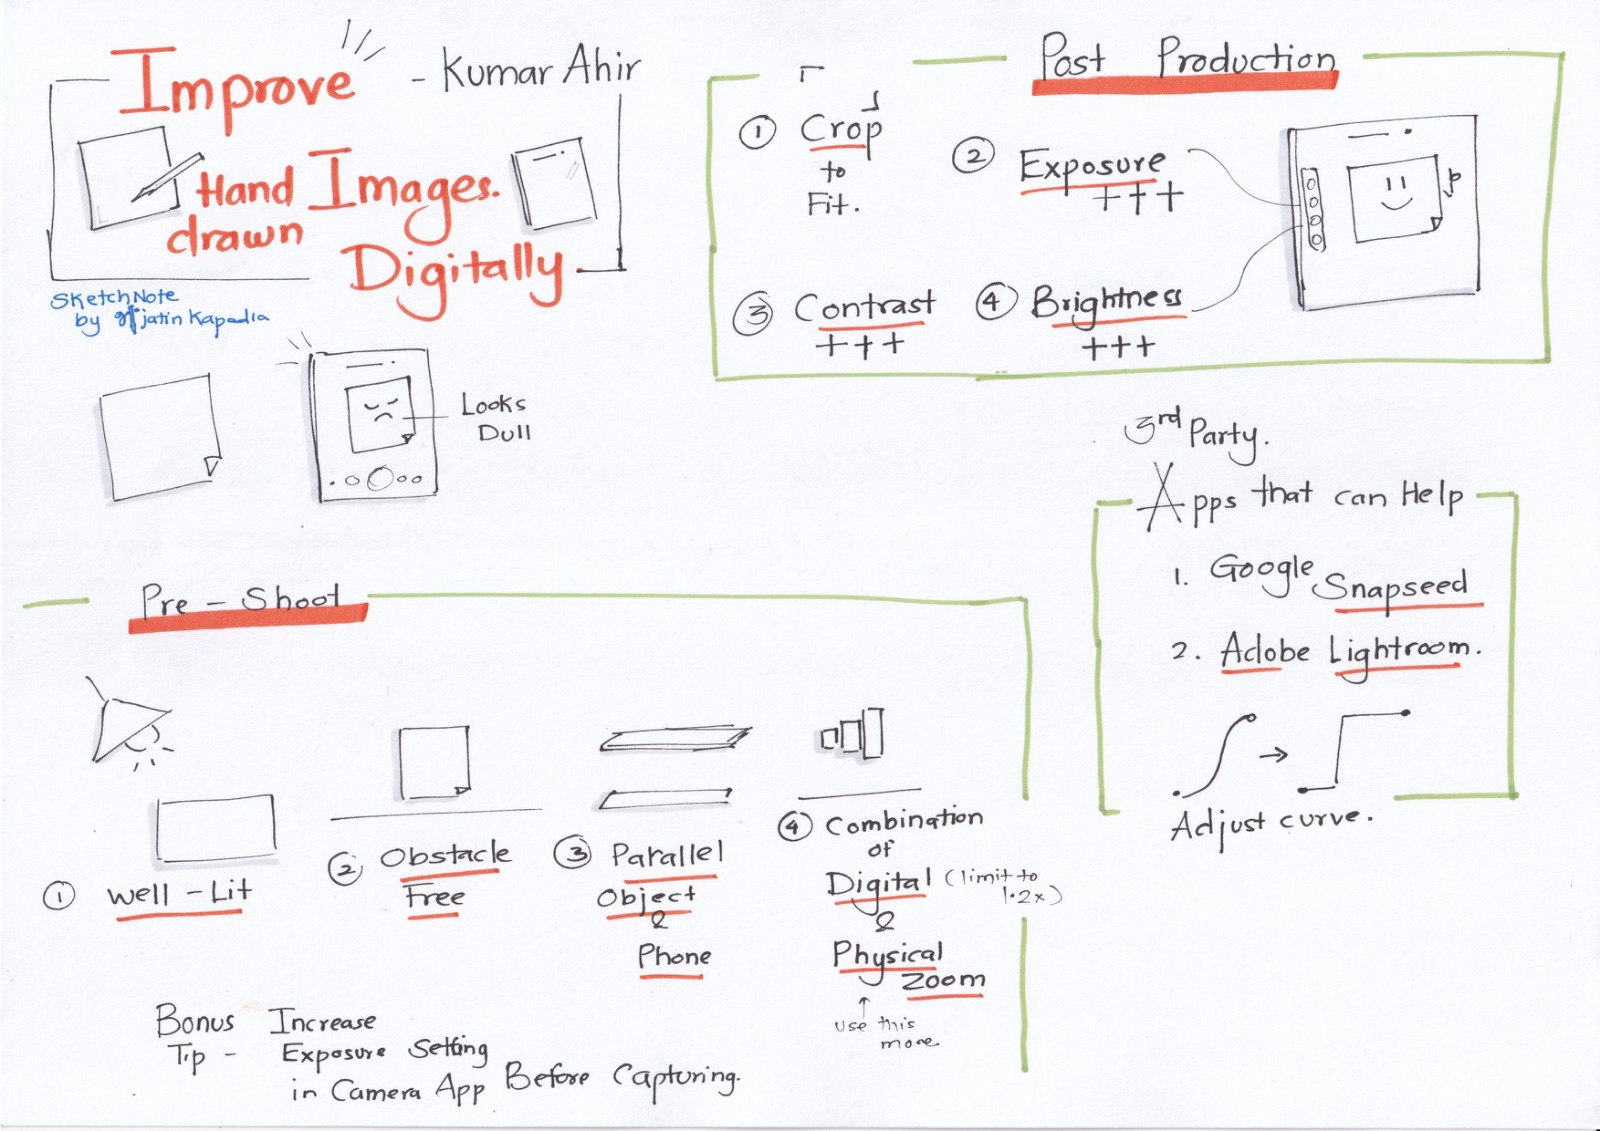 Improve - Kumar Ahir
Hand Images.
drawn
Digitally
SketchNote
by jatin Kapadia
Looks
Dull
Post Production
1 Crop
to
Fit.
2 Exposure
+++
3 Contrast
+++
4 Brightness
+++
3rd Party.
Apps that can Help
1. Google Snapseed
2. Adobe Lightroom.
Adjust curve.
Pre - Shoot
1 Well - Lit
2 Obstacle
Free
3 Parallel
Object
&
Phone
4 Combination
of
Digital (limit to
1.2x)
&
Physical
Zoom
use this
more
Bonus Increase
Tip - Exposure Setting
in Camera App Before Capturing.